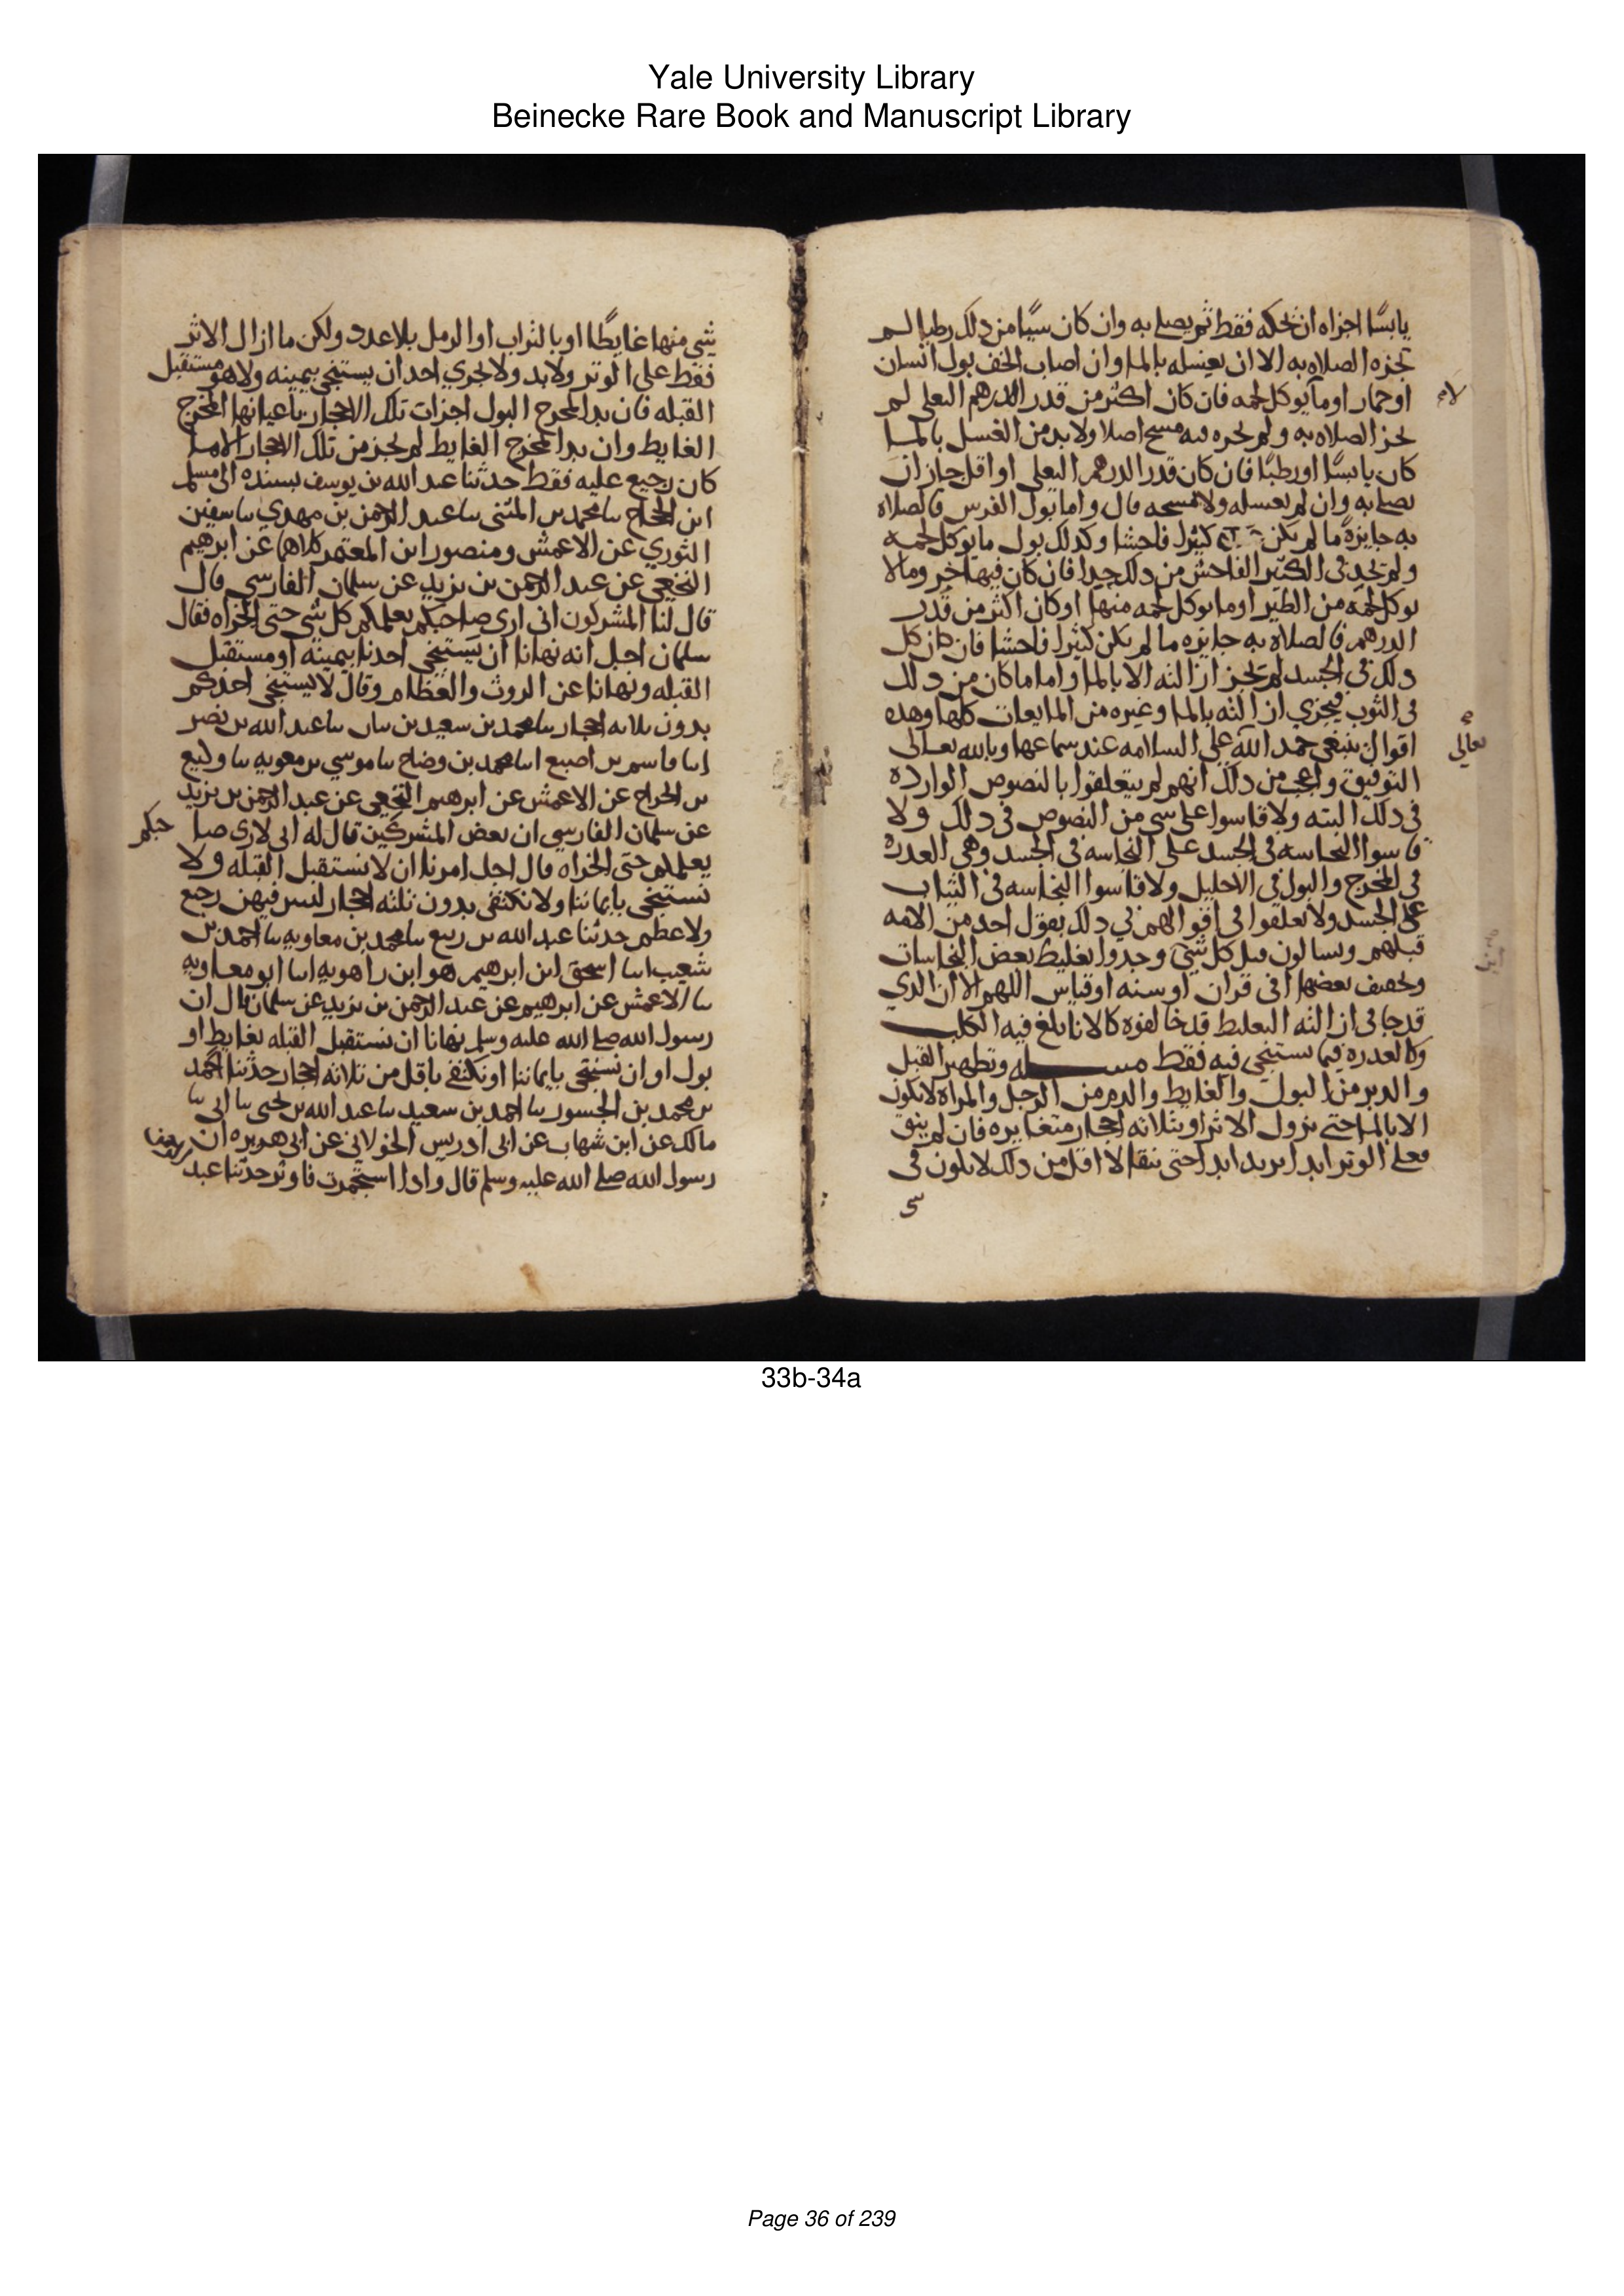 Yale University Library
Beinecke Rare Book and Manuscript Library
يابسًا اجزاه ان يحكه فقط ثم يصلي به وان كان شيا من ذلك رطبا لم
تجزه الصلاه به الا ان يغسله بالما وان اصاب الخف بول انسان
او حمار او ما لا يوكل لحمه فان كان اكثر من قدر الدرهم البغلي لم
تجز الصلاه به ولم يجزه فيه مسح اصلا ولا بد من الغسل بالما
كان يابسًا او رطبًا فان كان قدر الدرهم البغلي او اقل جاز ان
يصلي به وان لم يغسله ولا مسحه قال واما بول الفرس فالصلاه
به جايزة ما لم يكن كثيرا فاحشا وكذلك بول ما يوكل لحمه
ولم يحد في الكثير الفاحش من ذلك حدا فان كان فيها خرو ما لا
يوكل لحمه من الطير او ما يوكل لحمه منها او كان اكثر من قدر
الدرهم فالصلاه به جايزه ما لم يكن كثيرا فاحشا فان كان كل
ذلك في الجسد لم تجز ازالته الا بالما واما ما كان من ذلك
في الثوب فيجزي ازالته بالما وغيره من المايعات كلها وهذه
اقوال ينبغي حمد الله تعالى على السلامه عند سماعها وبالله تعالى
التوفيق واعجب من ذلك انهم لم يتعلقوا بالنصوص الوارده
في ذلك البته ولا قاسوا على شي من النصوص في ذلك ولا
قاسوا النجاسه في الجسد على النجاسه في الجسد وهي العذره
في المخرج والبول في الاحليل ولا قاسوا النجاسه في الثياب
على الجسد ولا تعلقوا في اقوالهم في ذلك بقول احد من الامه
قبلهم ويسالون قبل كل شي اين وجدوا تغليظ بعض النجاسات
وتخفيف بعضها افي قران او سنه او قياس اللهم الا ان الذي
قد جا في ازالته التغليظ قد خالفوه كالانا يلغ فيه الكلب
وكالعذره فيما يستنجى فيه فقط مسله وتطهير القبل
والدبر من البول والغايط والدم من الرجل والمراة لا يكون
الا بالما حتى يزول الاثر او بثلاثه احجار متغايره فان لم ينق
فعلى الوتر ابدا يزيد ابدا حتى ينقا لا اقل من ذلك لا يكون في
شي
شي منها غايطًا او بالتراب او الرمل بلا عدد ولكن ما ازال الاثر
فقط على الوتر ولا بد ولا يجزي احد ان يستنجي بيمينه ولا هو مستقبل
القبله فان بدا بمخرج البول اجزات تلك الاحجار باعيانها لمخرج
الغايط وان بدا بمخرج الغايط لم يجز من تلك الاحجار الا ما
كان رجيع عليه فقط حدثنا عبد الله بن يوسف بسنده الى مسلم
ابن الحجاج نا محمد بن المثنى نا عبد الرحمن بن مهدي نا سفين
الثوري عن الاعمش ومنصور ابن المعتمر كلاهما عن ابرهيم
النخعي عن عبد الرحمن بن يزيد عن سلمان الفارسي قال
قال لنا المشركون اني ارى صاحبكم يعلمكم كل شي حتى الخراه فقال
سلمان اجل انه نهانا ان يستنجي احدنا بيمينه او مستقبل
القبله ونهانا عن الروث والعظام وقال لا يستنجي احدكم
بدون ثلاثه احجار نا محمد بن سعيد بن نبات نا عبد الله بن نصر
انا قاسم بن اصبغ انا محمد بن وضاح نا موسي بن معويه نا وكيع
بن الجراح عن الاعمش عن ابرهيم النخعي عن عبد الرحمن بن يزيد
عن سلمان الفارسي ان بعض المشركين قال له اني لارى صاحبكم
يعلمكم حتى الخراه قال اجل امرنا ان لا نستقبل القبله ولا
نستنجي بايماننا ولا نكتفي بدون ثلثه احجار ليس فيهن رجيع
ولا عظم حدثنا عبد الله بن ربيع نا محمد بن معاويه نا احمد بن
شعيب انا اسحق ابن ابرهيم هو ابن راهويه انا ابو معاويه
نا الاعمش عن ابرهيم عن عبد الرحمن بن يزيد عن سلمان قال ان
رسول الله صلى الله عليه وسلم نهانا ان نستقبل القبله بغايط او
بول او ان نستنجي بايماننا او نكتفي باقل من ثلاثه احجار حدثنا احمد
بن محمد بن الجسور نا احمد بن سعيد نا عبد الله بن يحيى نا ابي نا
مالك عن ابن شهاب عن ابي ادريس الخولاني عن ابي هريره ان
رسول الله صلى الله عليه وسلم قال واذا استجمرت فاوتر حدثنا عبد
33b-34a
Page 36 of 239